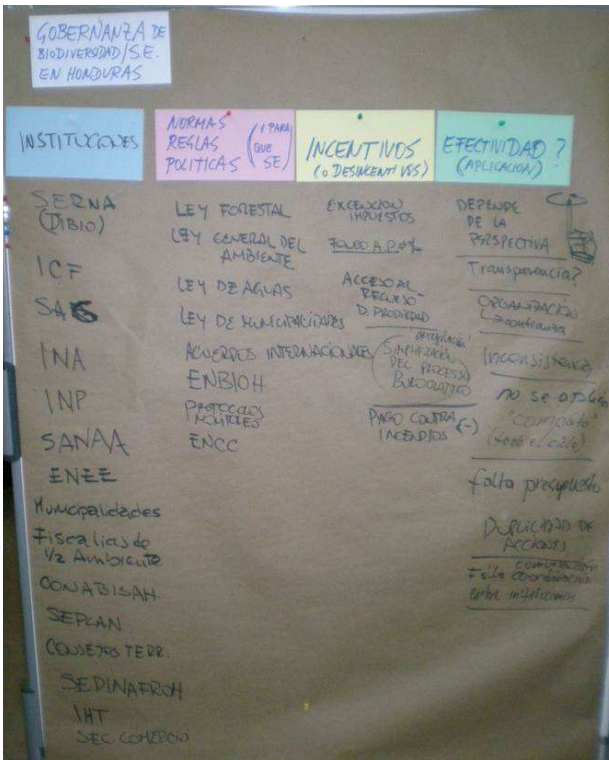 GOBERNANZA DE
BIODIVERSIDAD/S.E.
EN HONDURAS
INSTITUCIONES
SERNA
(DIBIO)
ICF
SAG
INA
INP
SANAA
ENEE
Municipalidades
Fiscalias de
1/2 Ambiente
CONABISAH
SEPLAN
CONSEJOS TERR.
SEDINAFROH
IHT
SEC. COMERCIO
NORMAS
REGLAS
POLITICAS
(Y PARA
QUE
SE)
LEY FORESTAL
LEY GENERAL DEL
AMBIENTE
LEY DE AGUAS
LEY DE MUNICIPALIDADES
ACUERDOS INTERNACIONALES
ENBIOH
PROTOCOLO
ENCC
INCENTIVOS
(O DESINCENTIVOS)
EXCENCION
IMPUESTOS
FONDO A.P.
ACCESO AL
RECURSO
D. PROPIEDAD
SIMPLIFICACION
DEL PROCESO
BUROCRATICO
PAGO CONTRA (-)
INCENDIOS
EFECTIVIDAD?
(APLICACION)
DEPENDE
DE LA
PERSPECTIVA
Transparencia?
ORGANIZACIÓN
Inconsistencia
no se
(todo el ciclo)
falta presupuesto
DUPLICIDAD DE
ACCIONES
comunicación
Falta coordinacion
entre